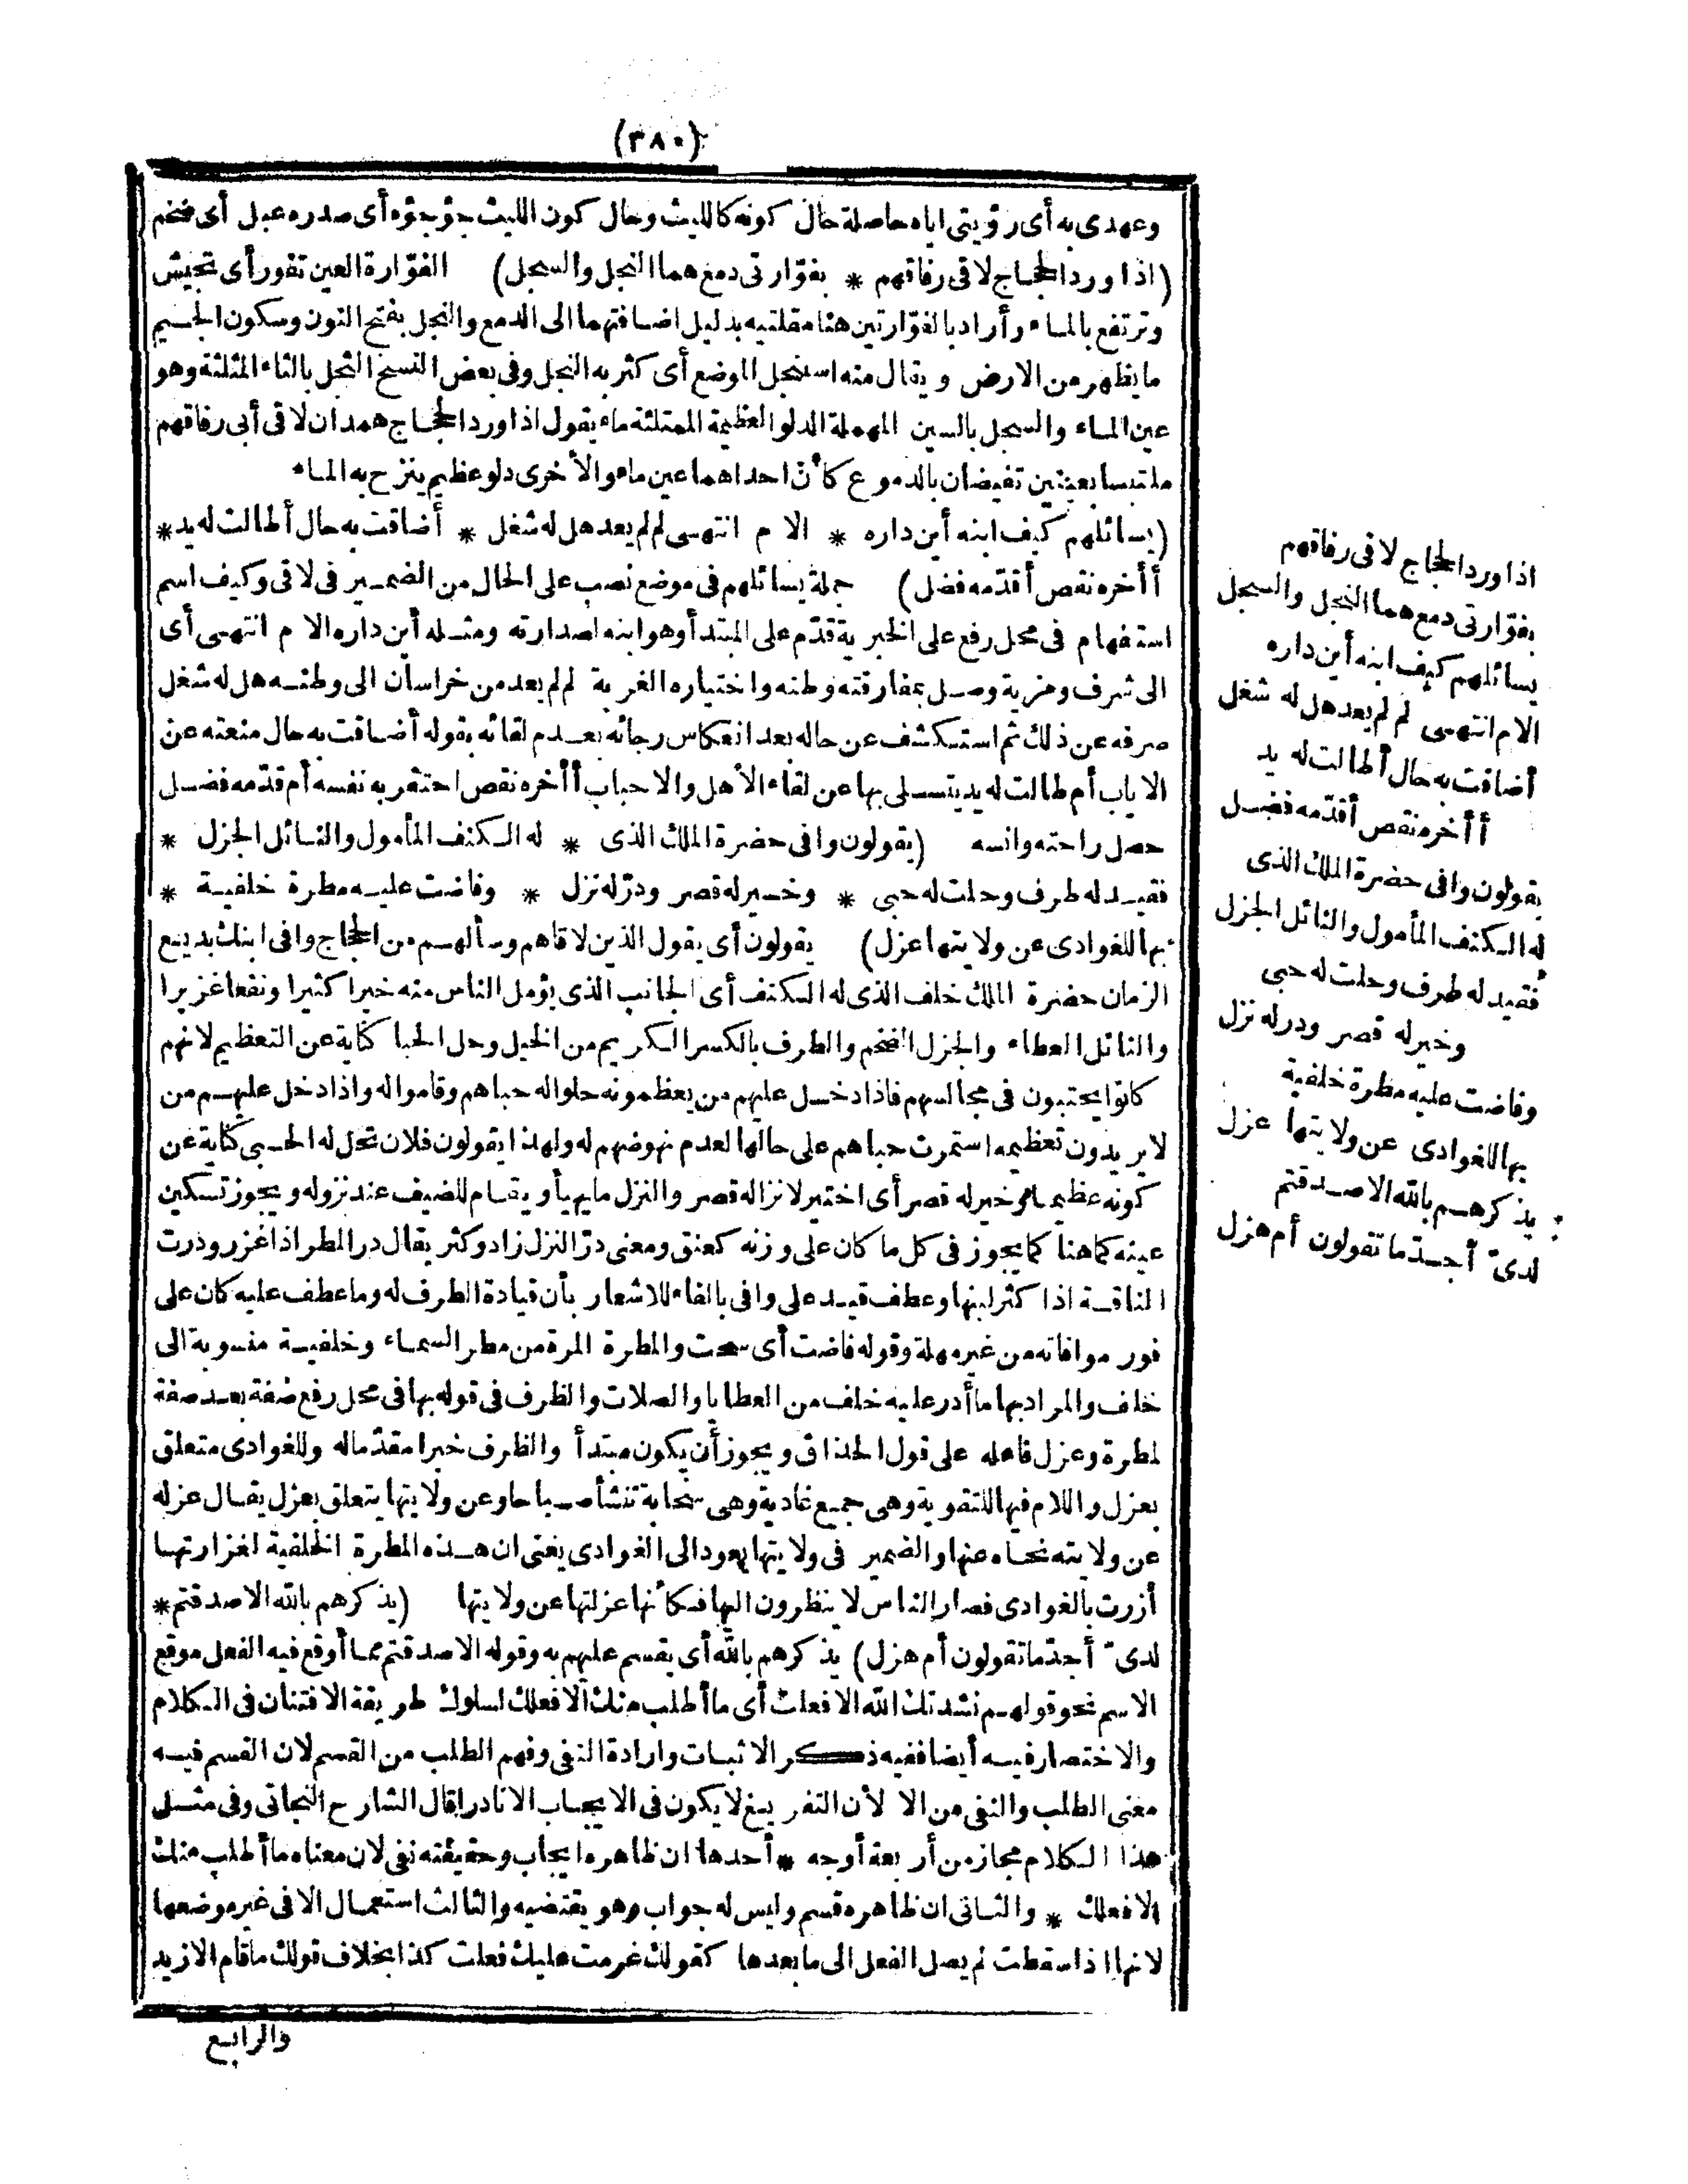 (٣٨٠)
وعهدى به أى رؤيتى اياه حاصلة حال كونه كالليث وحال كون الليث جؤجؤه أى صدره عبل أى ضخم
(اذا ورد الحجاج لاقى رفاقهم * بفوّارتى دمع هما النجل والسجل) الفوّارة العين تفور أى تجيش
وترتفع بالماء وأراد بالفوّارتين هنا مقلتيه بدليل اضافتهما الى الدمع والنجل بفتح النون وسكون الجسيم
ما يظهر من الارض ويقال منه استنجل الموضع أى كثر به النجل وفى بعض النسخ الثجل بالثاء المثلثة وهو
عين الماء والسجل بالسين المهملة الدلو العظيمة الممتلئة ماء يقول اذا ورد الحجاج همدان لاقى أبى رفاقهم
ملتبسا بعينين تفيضان بالدموع كأنّ احداهما عين ماء والأخرى دلو عظيم ينزح به الماء
(يسائلهم كيف ابنه أين داره * الا م انتهى لم لم يعد هل له شغل * أضاقت به حال أطالت له يد *
أأخره نقص أقدّمه فضل) جملة يسائلهم فى موضع نصب على الحال من الضمير فى لاقى وكيف اسم
استفهام فى محل رفع على الخبرية قدّم على المبتدأ وهو ابنه لصدارته ومثله أين داره الا م انتهى أى
الى شرف ومزية وصل بمفارقته وطنه واختياره الغربة لم لم يعد من خراسان الى وطنه هل له شغل
صرفه عن ذلك ثم استكشف عن حاله بعد انعكاس رجائه بعدم لقائه بقوله أضاقت به حال منعته عن
الاياب أم طالت له يد يتسلى بها عن لقاء الأهل والاحباب أأخره نقص احتقر به نفسه أم قدّمه فضل
حصل راحته وانسه (يقولون وافى حضرة الملك الذى * له الكنف المأمول والنائل الجزل *
فقيد له طرف وحلت له حبى * وخير له قصر ودرّ له نزل * وفاضت عليه مطرة خلفية *
بها للغوادى عن ولايتها عزل) يقولون أى يقول الذين لاقاهم وسألهم من الحجاج وافى ابنك بديع
الزمان حضرة الملك خلف الذى له الكنف أى الجانب الذى يؤمل الناس منه خيرا كثيرا ونفعا غزيرا
والنائل العطاء والجزل الضخم والطرف بالكسر الكريم من الخيل وحل الحبا كناية عن التعظيم لانهم
كانوا يحتبون فى مجالسهم فاذا دخل عليهم من يعظمونه حلوا له حباهم وقاموا له واذا دخل عليهم من
لا يريدون تعظيمه استمرت حباهم على حالها لعدم نهوضهم له ولهذا يقولون فلان تحل له الحبى كناية عن
كونه عظيما وخير له قصر أى اختير لانزاله قصر والنزل ما يهيأ ويقام للضيف عند نزوله ويجوز تسكين
عينه كما هنا كما يجوز فى كل ما كان على وزنه كعنق ومعنى درّ النزل زاد وكثر يقال در المطر اذا غزر ودرت
الناقة اذا كثر لبنها وعطف قيد على وافى بالفاء للاشعار بأن قيادة الطرف له وما عطف عليه كان على
فور موافاته من غير مهلة وقوله فاضت أى سحت والمطرة المرة من مطر السماء وخلفية منسوبة الى
خلف والمراد بها ما أدر عليه خلف من العطايا والصلات والظرف فى قوله بها فى محل رفع صفة بعد صفة
لمطرة وعزل فاعله على قول الحذاق ويجوز أن يكون مبتدأ والظرف خبرا مقدّما له وللغوادى متعلق
بعزل واللام فيها للتقوية وهى جميع غادية وهى سحابة تنشأ صباحا وعن ولايتها يتعلق بعزل يقال عزله
عن ولايته نحاه عنها والضمير فى ولايتها يعود الى الغوادى يعنى ان هذه المطرة الخلفية لغزارتها
أزرت بالغوادى فصار الناس لا ينظرون اليها فكأنها عزلتها عن ولايتها (يذكرهم بالله الا صدقتم *
لدىّ أجدّ ما تقولون أم هزل) يذكرهم بالله أى يقسم عليهم به وقوله الا صدقتم مما أوقع فيه الفعل موقع
الاسم نحو قولهم نشدتك الله الا فعلت أى ما أطلب منك الا فعلك لسلوك طريقة الافتنان فى الكلام
والاختصار فيه أيضا ففيه ذكر الاثبات وارادة النفى وفهم الطلب من القسم لان القسم فيه
معنى الطلب والنفى من الا لأن التفريغ لا يكون فى الايجاب الا نادرا قال الشارح النجاتى وفى مثل
هذا الكلام مجاز من أربعة أوجه * أحدها ان ظاهره ايجاب وحقيقته نفى لان معناه ما أطلب منك
الا فعلك * والثانى ان ظاهره قسم وليس له جواب وهو يقتضيه والثالث استعمال الا فى غير موضعها
لانها اذا سقطت لم يصل الفعل الى ما بعدها كقولك عزمت عليك فعلت كذا بخلاف قولك ما قام الا زيد
والرابع
اذا ورد الحجاج لاقى رفاقهم
بفوّارتى دمع هما النجل والسجل
يسائلهم كيف ابنه أين داره
الام انتهى لم لم يعد هل له شغل
أضاقت به حال أطالت له يد
أأخره نقص أقدّمه فضل
يقولون وافى حضرة الملك الذى
له الكنف المأمول والنائل الجزل
فقيد له طرف وحلت له حبى
وخير له قصر ودر له نزل
وفاضت عليه مطرة خلفية
بها للغوادى عن ولايتها عزل
يذكرهم بالله الا صدقتم
لدىّ أجدّ ما تقولون أم هزل